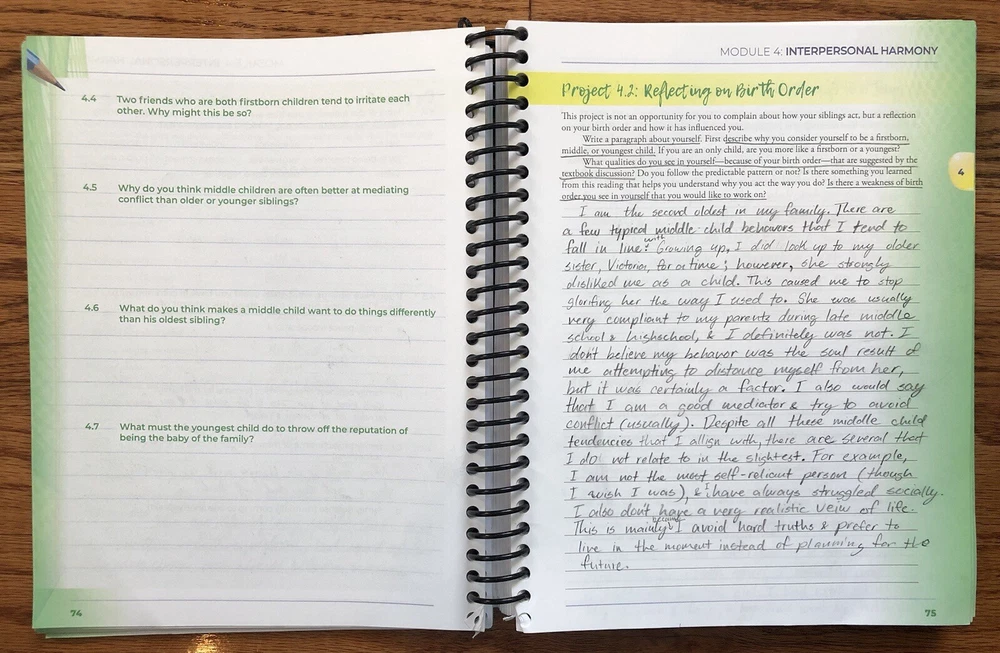 4.4 Two friends who are both firstborn children tend to irritate each
other. Why might this be so?
4.5 Why do you think middle children are often better at mediating
conflict than older or younger siblings?
4.6 What do you think makes a middle child want to do things differently
than his oldest sibling?
4.7 What must the youngest child do to throw off the reputation of
being the baby of the family?
74
MODULE 4: INTERPERSONAL HARMONY
Project 4.2: Reflecting on Birth Order
This project is not an opportunity for you to complain about how your siblings act, but a reflection
on your birth order and how it has influenced you.
Write a paragraph about yourself. First describe why you consider yourself to be a firstborn,
middle, or youngest child. If you are an only child, are you more like a firstborn or a youngest?
What qualities do you see in yourself—because of your birth order—that are suggested by the
textbook discussion? Do you follow the predictable pattern or not? Is there something you learned
from this reading that helps you understand why you act the way you do? Is there a weakness of birth
order you see in yourself that you would like to work on?
4
I am the second oldest in my family. There are
a few typical middle child behaviors that I tend to
fall in line with. Growing up, I did look up to my older
sister, Victoria, for a time; however, she strongly
disliked me as a child. This caused me to stop
glorifing her the way I used to. She was usually
very compliant to my parents during late middle
school & highschool, & I definitely was not. I
don't believe my behavor was the soul result of
me attempting to distance myself from her,
but it was certainly a factor. I also would say
that I am a good mediator & try to avoid
conflict (usually). Despite all these middle child
tendencies that I allign with, there are several that
I do not relate to in the slightest. For example,
I am not the most self-reliant person (though
I wish I was), & I have always struggled socially.
I also don't have a very realistic veiw of life.
This is mainly because I avoid hard truths & prefer to
live in the moment instead of planning for the
future.
75